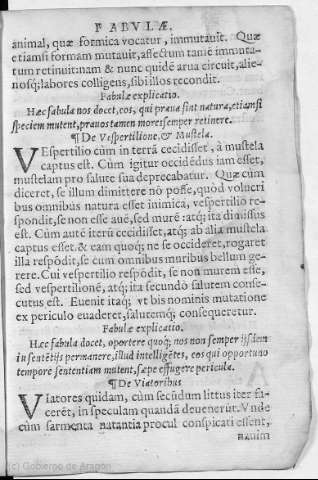 FABVLÆ.
animal, quæ formica vocatur, immutauit. Quæ
etiamsi formam mutauit, affectum tamē immuta-
tum retinuit: nam & nunc quidē arua circuit, alie-
nosq; labores colligens, sibi illos recondit.
Fabulæ explicatio.
Hæc fabula nos docet, eos, qui praua sint natura, etiamsi
speciem mutent, prauos tamen mores semper retinere.
¶ De Vespertilione, & Mustela.
VEspertilio cùm in terrā cecidisset, à mustela
captus est. Cùm igitur occidēdus iam esset,
mustelam pro salute sua deprecabatur. Quæ cùm
diceret, se illum dimittere nō posse, quòd volucri
bus omnibus natura esset inimica, vespertilio re-
spondit, se non esse auē, sed murē: atq; ita dimissus
est. Cùm autē iterū cecidisset, atq; ab alia mustela
captus esset, & eam quoq; ne se occideret, rogaret
illa respōdit, se cum omnibus muribus bellum ge-
rere. Cui vespertilio respōdit, se non murem esse,
sed vespertilionē, atq; ita secundò salutem conse-
cutus est. Euenit itaq; vt bis nominis mutatione
ex periculo euaderet, salutemq; consequeretur.
Fabulæ explicatio.
Hæc fabula docet, oportere quoq; nos non semper ijsdem
iu sentētijs permanere, illud intelligētes, eos qui opportuno
tempore sententiam mutent, sæpe effugere pericula.
¶ De Viatoribus
VIatores quidam, cùm secūdum littus iter fa-
cerēt, in speculam quandā deuenerūt. Vnde
cùm sarmenta natantia procul conspicati essent,
nauim
(c) Gobierno de Aragón